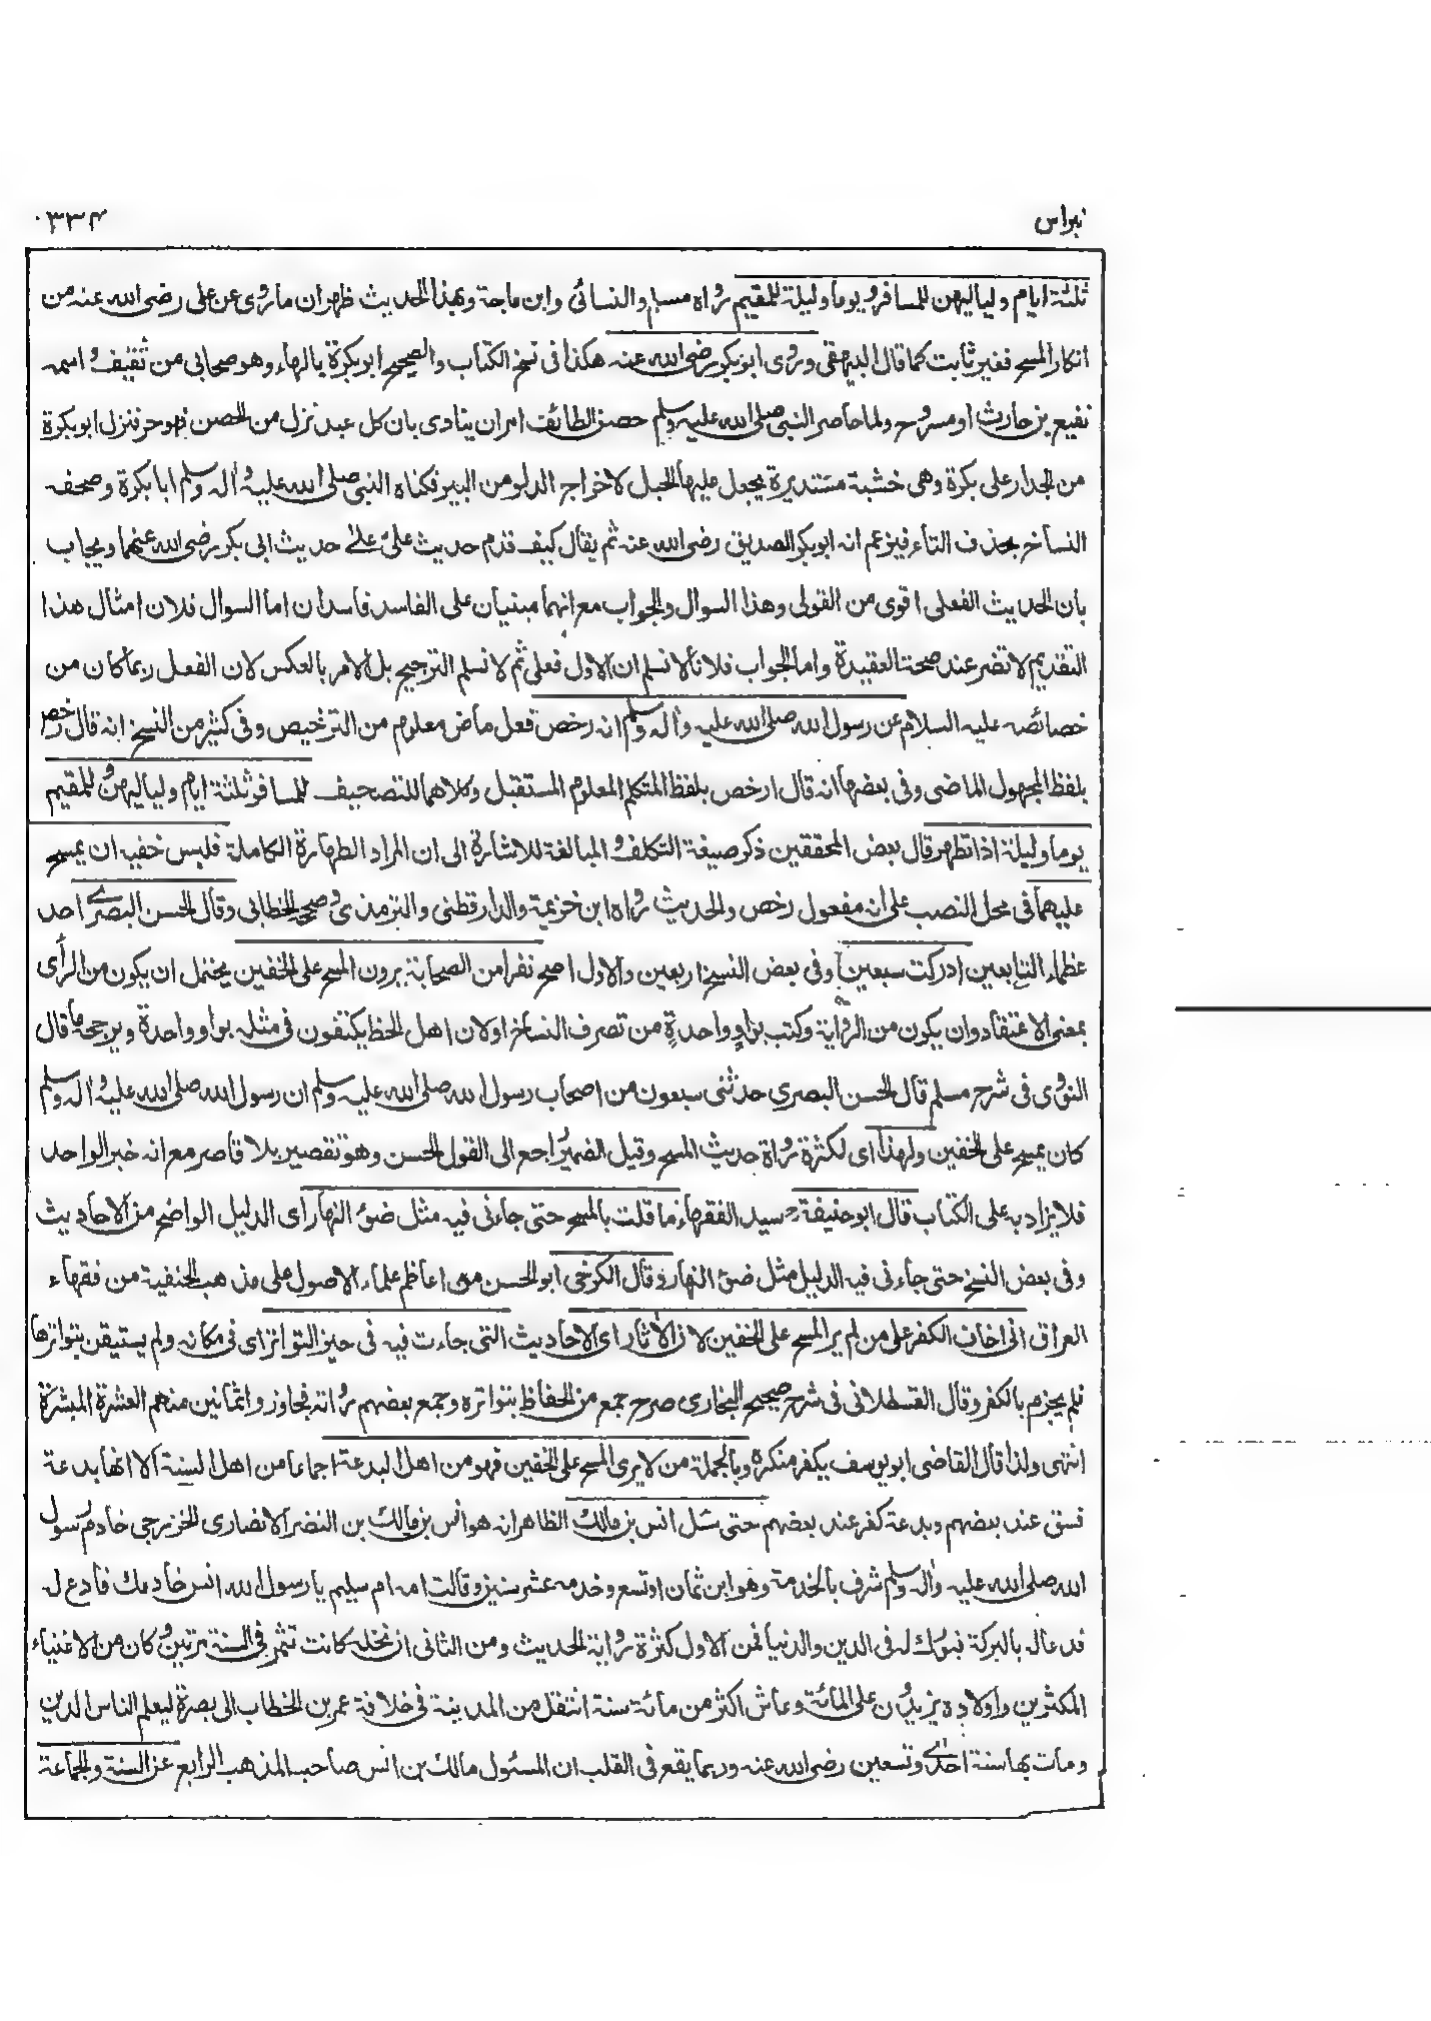 نبراس
۳۳۴
ثلثة ايام ولياليهن للمسافر ويوما وليلة للمقيم رواه مسلم والنسائى وابن ماجة وبهذا الحديث ظهر ان ما روى عن على رضى الله عنه من
انكار المسح فغير ثابت كما قال البيهقى وروى ابو بكر رضى الله عنه هكذا فى نسخ الكتاب والصحيح ابو بكرة بالهاء وهو صحابى من ثقيف اسمه
نفيع بن حارث او مسروح ولما حاصر النبى صلى الله عليه وسلم حصن الطائف امر ان ينادى بان كل عبد نزل من الحصن فهو حر فنزل ابو بكرة
من الجدار على بكرة وهى خشبة مستديرة يجعل عليها الحبل لاخراج الدلو من البير فكناه النبى صلى الله عليه واله وسلم ابا بكرة وصحف
النساخ بحذف التاء فيزعم انه ابو بكر الصديق رضى الله عنه ثم يقال كيف قدم حديث على على حديث ابى بكر رضى الله عنهما ويجاب
بان الحديث الفعلى اقوى من القولى وهذا السوال والجواب مع انهما مبنيان على الفاسد فاسدان اما السوال فلان امثال هذا
التقديم لا تضر عند صحة العقيدة واما الجواب فلانا لا نسلم ان الاول فعلى ثم لا نسلم الترجيح بل الامر بالعكس لان الفعل ربما كان من
خصائصه عليه السلام عن رسول الله صلى الله عليه واله وسلم انه رخص فعل ماض معلوم من الترخيص وفى كثير من النسخ انه قال رخص
بلفظ المجهول الماضى وفى بعضها انه قال ارخص بلفظ المتكلم المعلوم المستقبل وكلاهما للتصحيف للمسافر ثلثة ايام ولياليهن وللمقيم
يوما وليلة اذا تطهر قال بعض المحققين ذكر صيغة التكلف والمبالغة للاشارة الى ان المراد الطهارة الكاملة فلبس خفيه ان يمسح
عليهما فى محل النصب على انه مفعول رخص والحديث رواه ابن خزيمة والدارقطنى والترمذى وصححه الخطابى وقال الحسن البصرے احد
عظماء التابعين ادركت سبعين وفى بعض النسخ اربعين والاول اصح نفرا من الصحابة يرون المسح على الخفين يحتمل ان يكون من الرأى
بمعنى الاعتقاد وان يكون من الرواية وكتب بواو واحدة من تصرف النساخ اولان اهل الخط يكتفون فى مثله بواو واحدة ويرجحه ما قال
النووى فى شرح مسلم قال الحسن البصرى حدثنى سبعون من اصحاب رسول الله صلى الله عليه وسلم ان رسول الله صلى الله عليه واله وسلم
كان يمسح على الخفين ولهذا اى لكثرة رواة حديث المسح وقيل الضمير راجع الى القول الحسن وهو تقصير بلا قاصر مع انه خبر الواحد
فلا يزاد به على الكتاب قال ابو حنيفة رح سيد الفقهاء ما قلت بالمسح حتى جاءنى فيه مثل ضوء النهار اى الدليل الواضح من الاحاديث
وفى بعض النسخ حتى جاءنى فيه الدليل مثل ضوء النهار وقال الكرخى ابو الحسن من اعاظم علماء الاصول على مذهب الحنفية من فقهاء
العراق انى اخاف الكفر على من لم ير المسح على الخفين لان الآثار اى الاحاديث التى جاءت فيه فى حيز التواتر اى فى مكانه ولم يستيقن بتواترها
فلم يجزم بالكفر وقال القسطلانى فى شرح صحيح البخارى صرح جمع من الحفاظ بتواتره وجمع بعضهم رواته فجاوزوا ثمانين منهم العشرة المبشرة
انتهى ولذا قال القاضى ابو يوسف يكفر منكره وبالجملة من لا يرى المسح على الخفين فهو من اهل البدعة اجماعا من اهل السنة الا انها بدعة
فسق عند بعضهم وبدعة كفر عند بعضهم حتى سئل انس بن مالك الظاهر انه هو انس بن مالك بن النضر الانصارى الخزرجى خادم رسول
الله صلى الله عليه واله وسلم شرف بالخدمة وهو ابن ثمان او تسع وخدمه عشر سنين وقالت امه ام سليم يا رسول الله انس خادمك فادع له
فدعا له بالبركة فبورك له فى الدين والدنيا فمن الاول كثرة رواية الحديث ومن الثانى ان نخله كانت تثمر فى السنة مرتين وكان من الاغنياء
المكثرين واولاده يزيدون على المائة وعاش اكثر من مائة سنة انتقل من المدينة فى خلافة عمر بن الخطاب الى بصرة ليعلم الناس الدين
ومات بها سنة احدے وتسعين رضى الله عنه وربما يقع فى القلب ان المسئول مالك بن انس صاحب المذهب الرابع عن السنة والجماعة